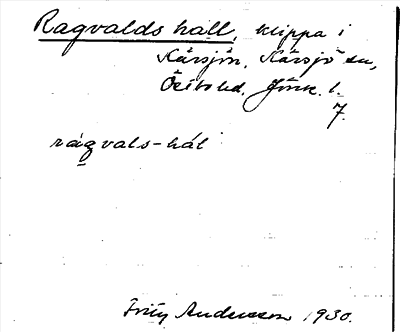 Ragvalds hall, klippa i
Kärsjön, Kärsjö sn,
Östbo hd. Jönk. l.
7.
ragvals-hál
Fritz Andersson 1930.